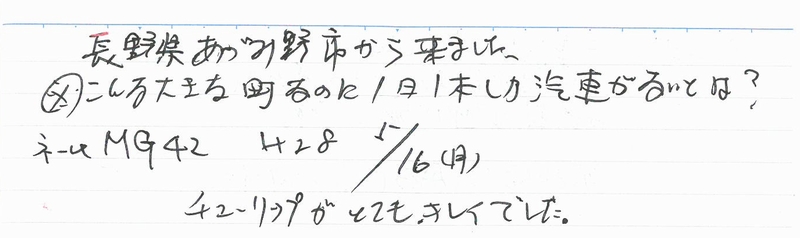 長野県あづみ野市から来ました、
㊟こんな大きな町なのに1日1本しか汽車がないとは?
ネーム MG42 H28 5/16(月)
チューリップがとてもキレイでした。